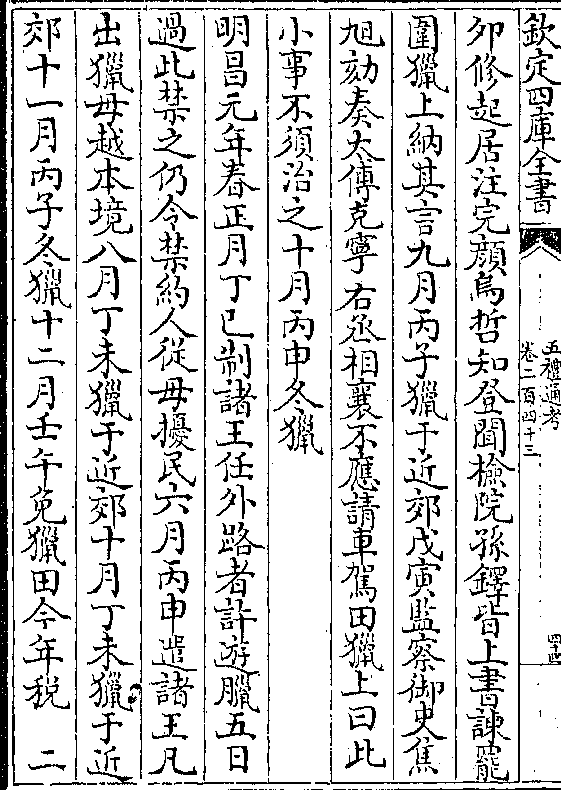 欽定四庫全書
五禮通考
卷二百四十三
四十四
夘修起居注完顔烏哲知登聞檢院孫鐸皆上書諫罷
圍獵上納其言九月丙子獵于近郊戊寅監察御史焦
旭劾奏太傅克寧右丞相襄不應請車駕田獵上曰此
小事不須治之十月丙申冬獵
明昌元年春正月丁巳制諸王任外路者許游臘五日
過此禁之仍令禁約人從毋擾民六月丙申遣諸王凡
出獵毋越本境八月丁未獵于近郊十月丁未獵于近
郊十一月丙子冬獵十二月壬午免獵田今年税 二